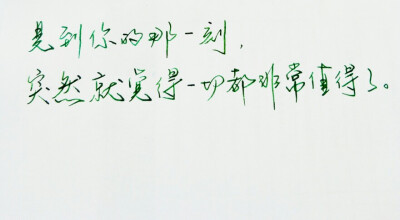 见到你的那一刻，
突然就觉得一切都非常值得了。